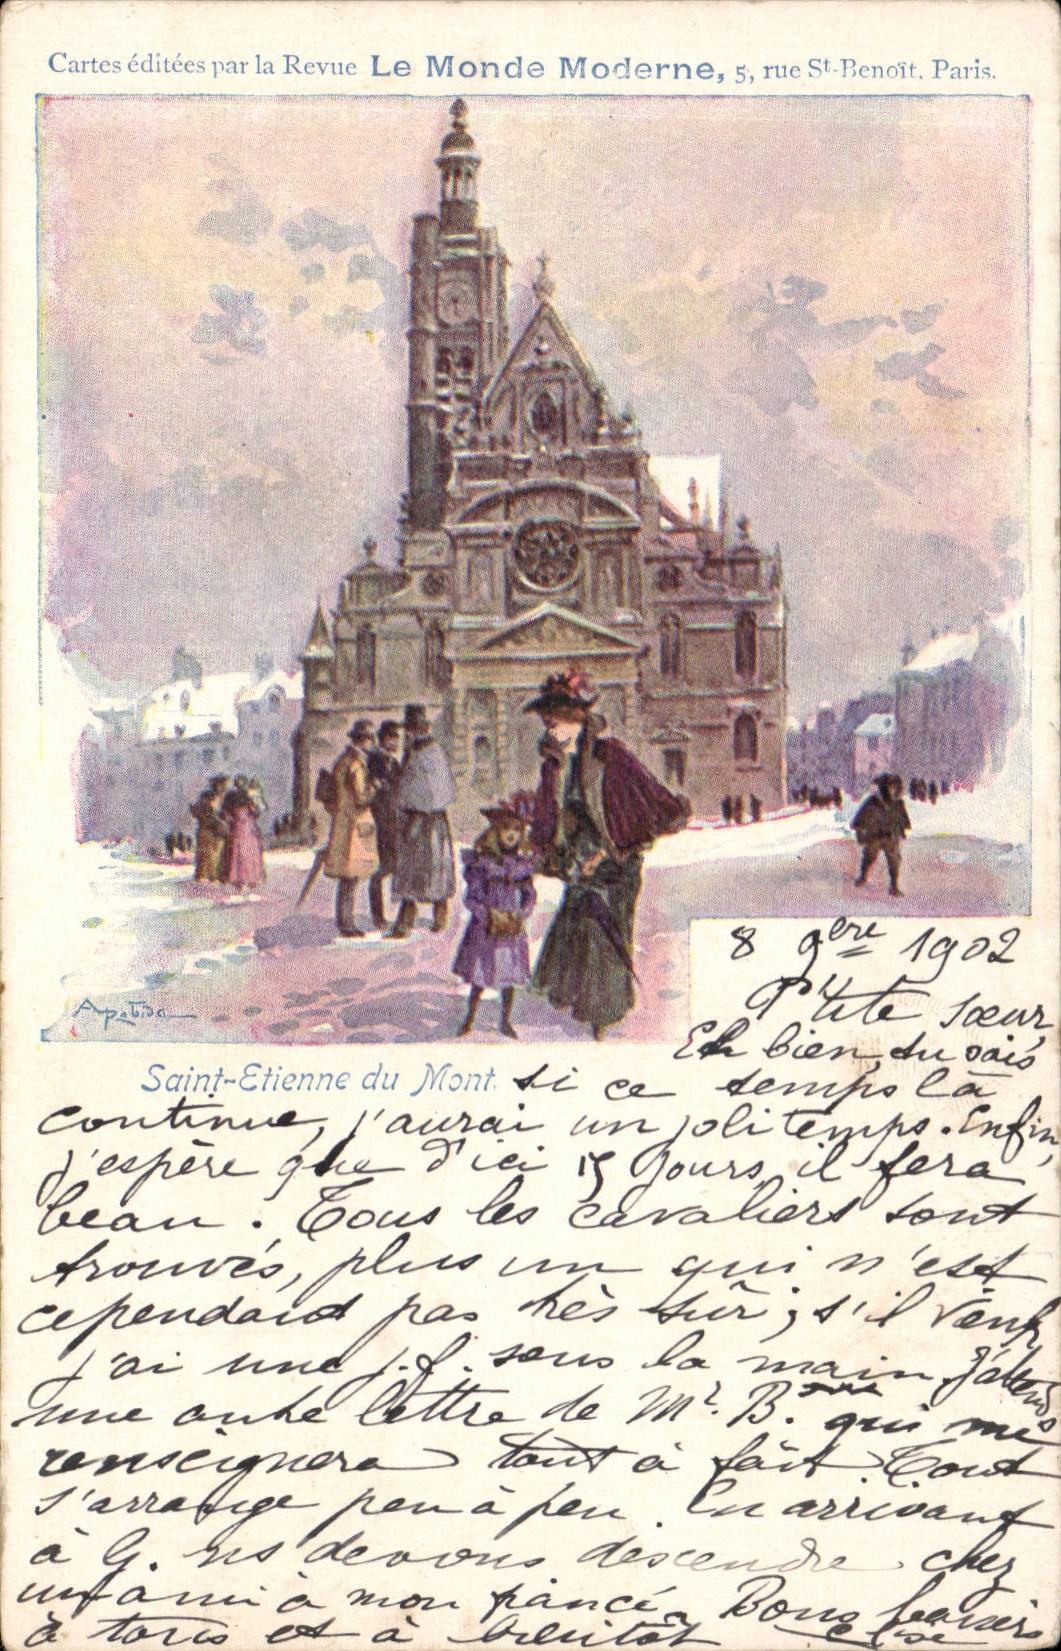 Cartes éditées par la Revue Le Monde Moderne, 5, rue St-Benoît, Paris.
8 9bre 1902
P'tite sœur,
Eh bien, tu sais
Saint-Etienne du Mont.
si ce temps là
continue, j'aurai un joli temps. Enfin,
j'espère que d'ici 15 jours, il fera
beau. Tous les cavaliers sont
trouvés, plus un qui n'est
cependant pas très sûr ; s'il vient,
j'ai une j. f. sous la main. J'attends
une autre lettre de Mr. B. qui me
renseignera tout à fait. Tout
s'arrange peu à peu. En arrivant
à G. ns devons descendre chez
un ami à mon fiancé. Bons baisers
à tous et à bientôt